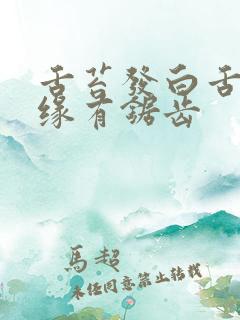 舌苔發白舌
緣有鋸齒
馬超
未经同意禁止转载